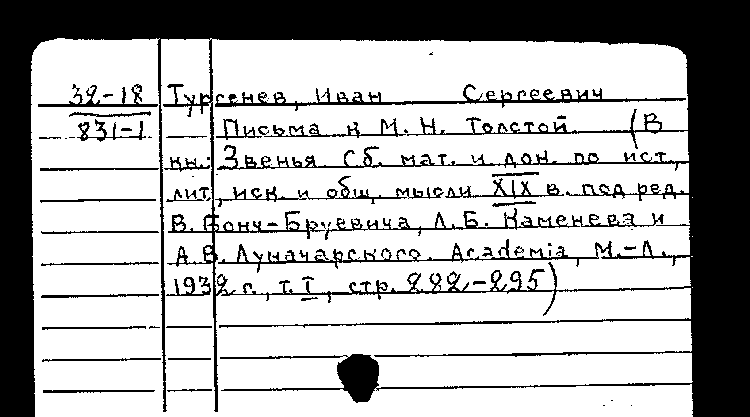 32-18 Тургенев, Иван Сергеевич
831-1 Письма к М. Н. Толстой. (В
кн.: Звенья. Сб. мат. и док. по ист.,
лит., иск. и общ. мысли XIX в. под ред.
В. Бонч-Бруевича, Л. Б. Каменева и
А. В. Луначарского. Academia, М.-Л.,
1932 г., т. I, стр. 282-295)